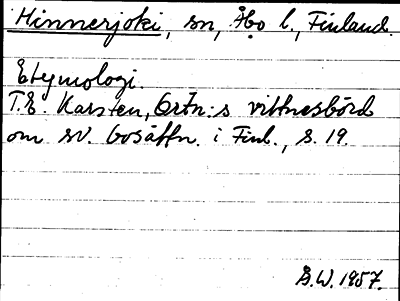 Hinnerjoki, sn, Åbo l., Finland.
Etymologi.
T.E. Karsten, Ortn:s vittnesbörd
om sv. bosättn. i Finl., s. 19.
B.W. 1957.